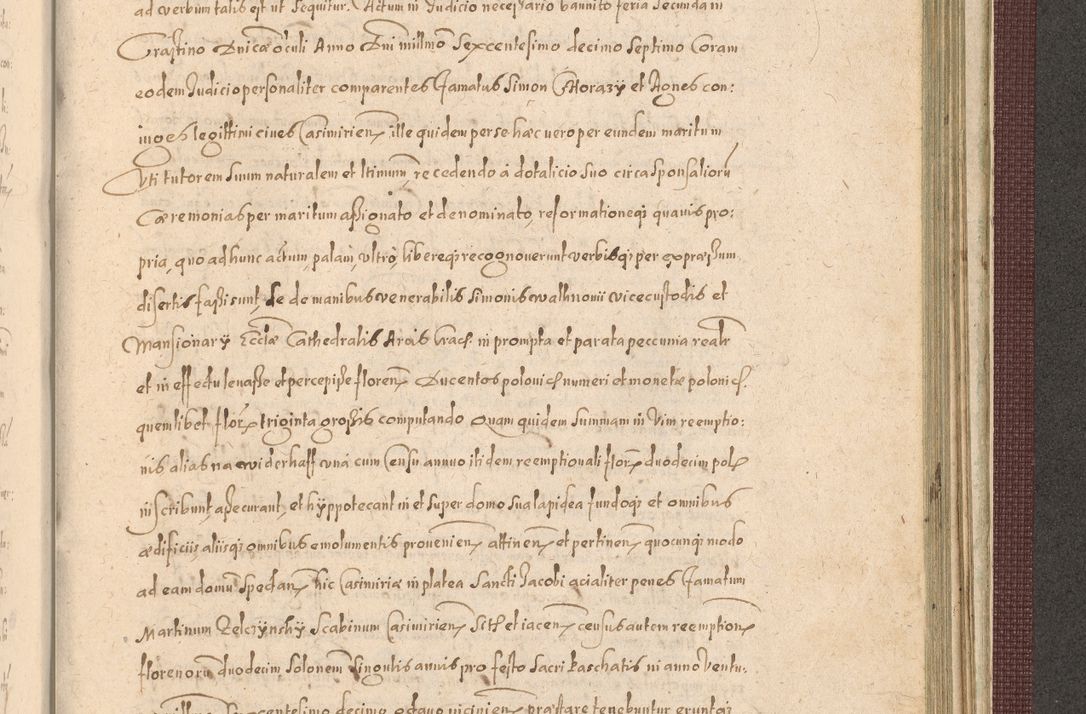 ad verbum talis est ut sequitur. Actum in Judicio necessario bannito feria secunda in
Crastino Dnicæ oculi Anno Dni millmo Sexcentesimo decimo septimo Coram
eodem Judicio personaliter comparentes Famatus Simon Chorazÿ et Agnes con:
iuges legittimi cives Casimirien, ille quidem per se hæc vero per eundem maritum
Uti tutorem suum naturalem et ltimum, recedendo à dotalicio suo circa sponsalioru
Cæremonias per maritum assignato et denominato, reformationeq; quavis pro:
pria, quo ad hunc actum, palam, ultrò, libereq; recognoverunt verbisq; per expræssum
disertis fassi sunt, se de manibus venerabilis Simonis Walknowii vicecustodis et
Mansionarÿ Ecclæ Cathedralis Arcis Crac. in prompta et parata peccunia realr
et in effectu levasse et percepisse floren Ducentos polonic numeri et monetæ polonic.
quemlibet flor triginta grossis computando Quam quidem summam in Vim reemptio:
nis alias na widerkaff una cum Censu annuo itidem reemptionali flor duodecim pol
inscribunt, assecurant, et hÿppotecant in et super domo sua lapidea fundoq; et omnibus
ædificiis, aliisq; omnibus emolumentis provenien, attinen, et pertinen, quocunq; modo
ad eam domu spectan, hic Casimiriæ in platea Sancti Jacobi acialiter penes Famatum
Martinum Zelczÿnskÿ Scabinum Casimirien, Sith et iacen, census autem reemption,
florenoru duodecim solonem Singulis annis pro festo Sacri Paschatis in anno ventu:
centesimo decimo octavo præstare tenebuntur eruntq;